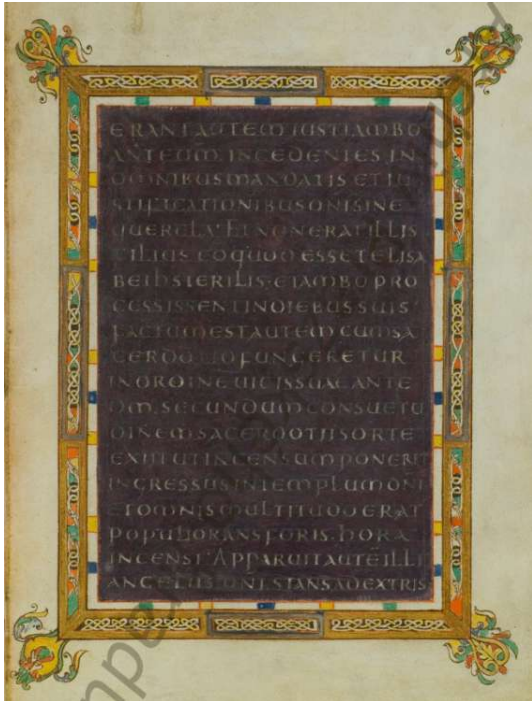 ERANT AUTEM IUSTI AMBO
ANTE DM̅. INCEDENTES IN
OMNIBUS MANDATIS ET IU
STIFICATIONIBUS DNI SINE
QUERELA. ET NON ERAT ILLIS
FILIUS. EO QUOD ESSET ELISA
BETH STERILIS. ET AMBO PRO
CESSISSENT IN DIEBUS SUIS
FACTUM EST AUTEM CUM SA
CERDOTIO FUNGERETUR
IN ORDINE UICIS SUAE ANTE
DM̅. SECUNDUM CONSUETU
DINEM SACERDOTII SORTE
EXIIT UT INCENSUM PONERET
INGRESSUS IN TEMPLUM DNI
ET OMNIS MULTITUDO ERAT
POPULI ORANS FORIS. HORA
INCENSI. APPARUIT AUTĒ ILLI
ANGELUS DNI STANS A DEXTRIS